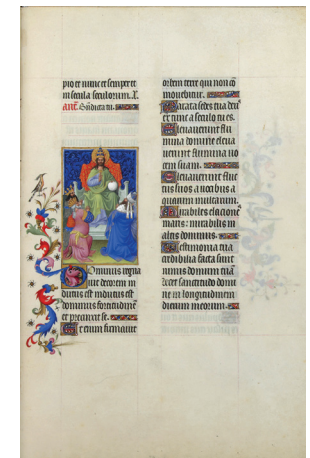 pio et nunc et semper et
in secula seculorum. A.
ant. Bn̄dicta tu.
Dominus regna
uit decorem in
dutus est indutus est
dominus fortitudinē
et precinxit se.
Etenim firmauit
orbem terre qui non cō
mouebitur.
Parata sedes tua deus
ex tunc a seculo tu es.
Eleuauerunt flu
mina domine eleua
uerunt flumina uo
cem suam.
Eleuauerunt fluc
tus suos a uocibus a
quarum multarum.
Mirabiles elacionē
maris: mirabilis in
altis dominus.
Testimonia tua
credibilia facta sunt
nimis domum tuā
decet sanctitudo domi
ne in longitudinem
dierum meorum.